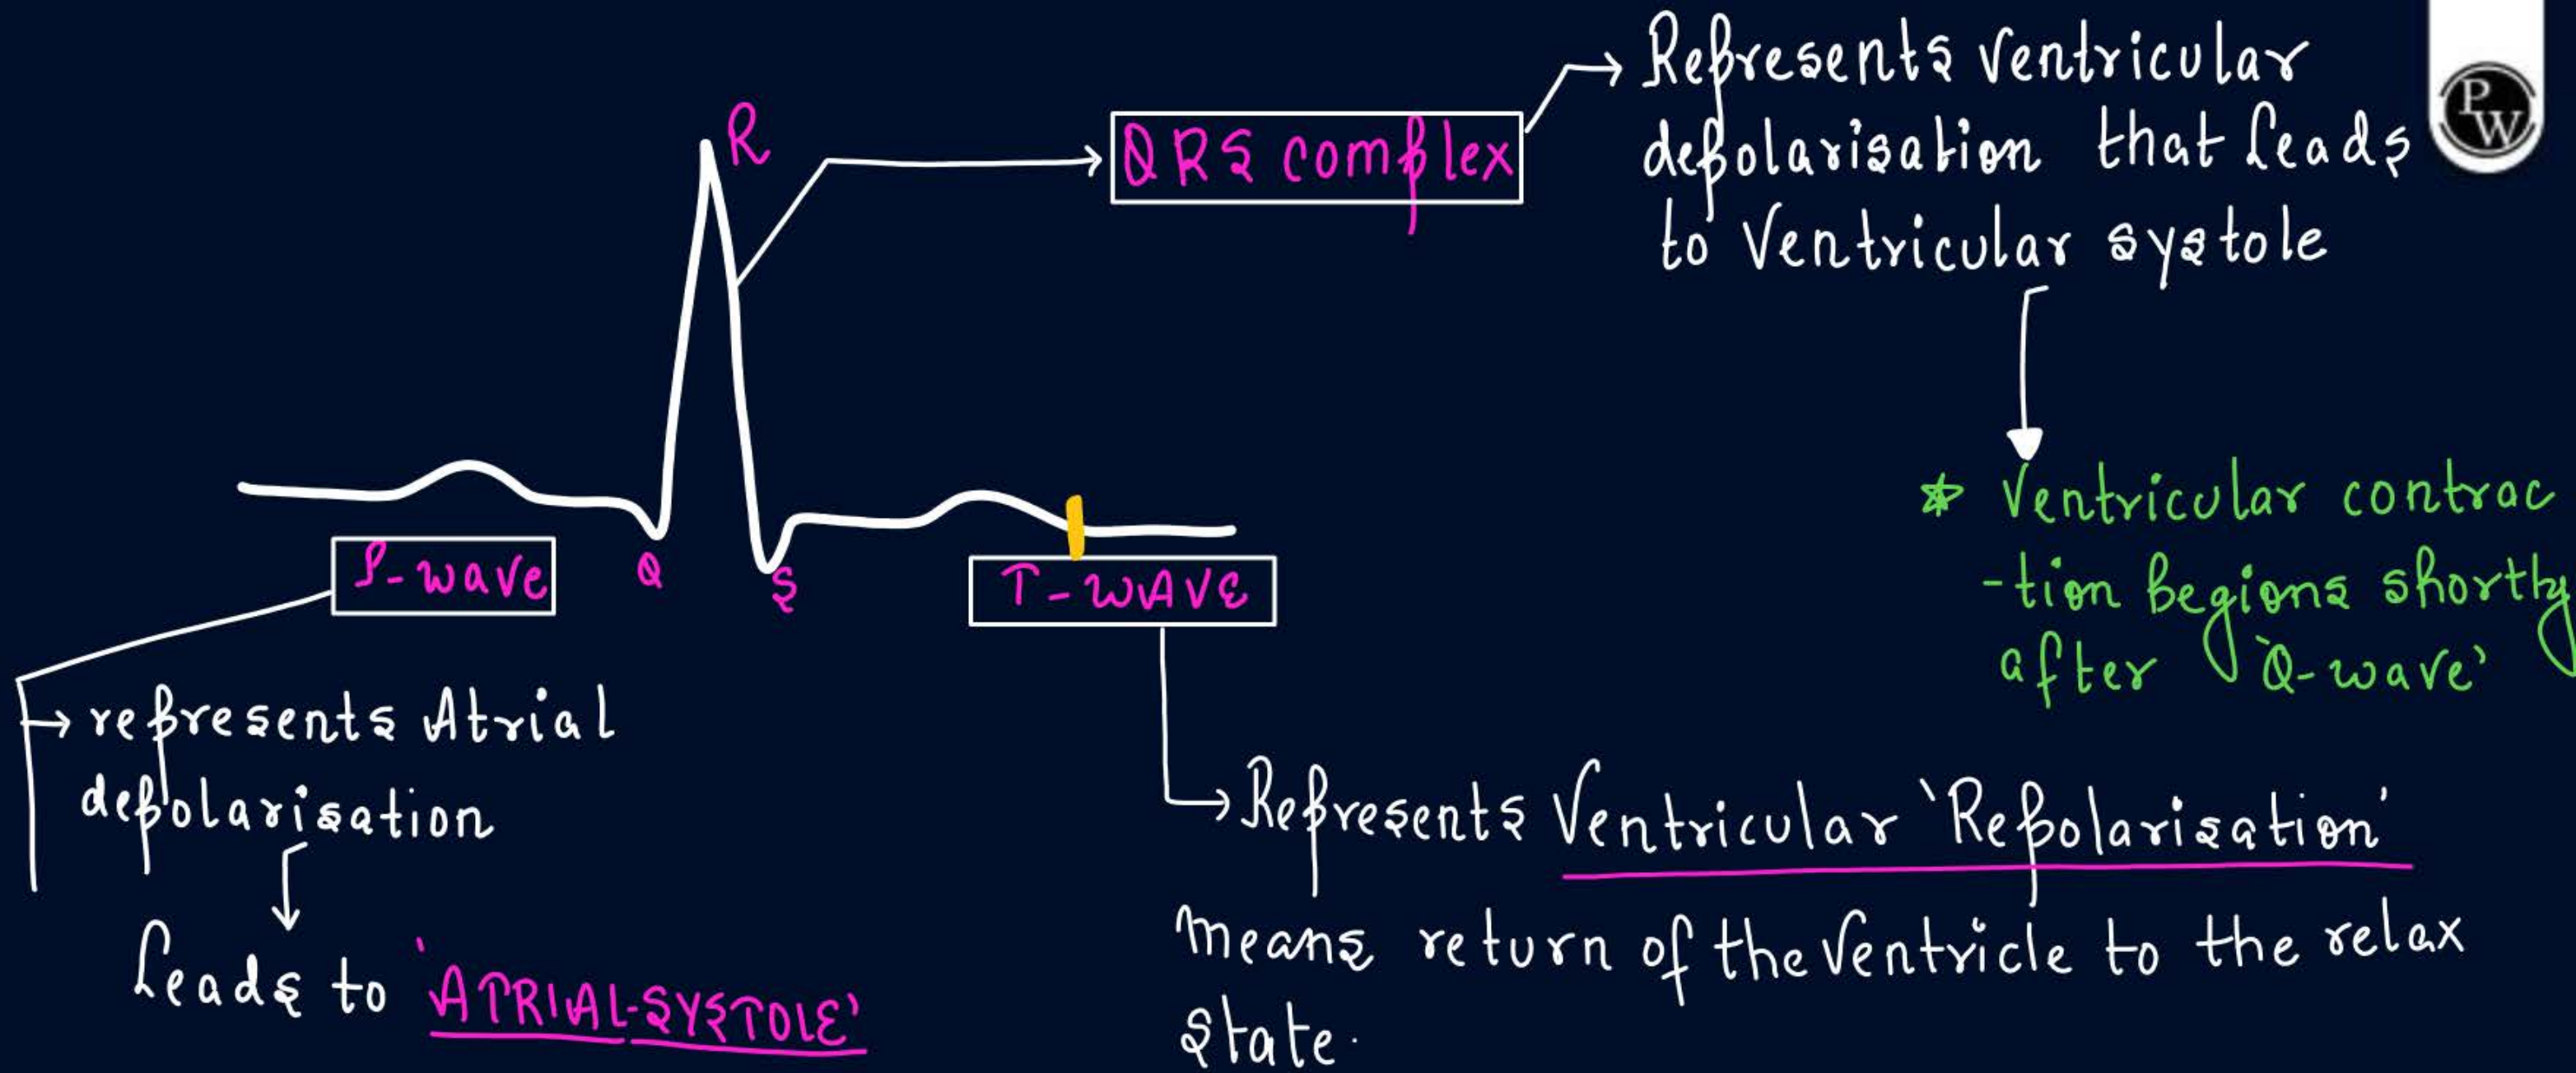 R
QRS complex
Represents ventricular
depolarisation that leads
to Ventricular systole
P
W
* Ventricular contrac
-tion begions shortly
after 'Q-wave'
P-wave
Q
S
T-WAVE
represents Atrial
depolarisation
leads to 'ATRIAL-SYSTOLE'
Represents Ventricular 'Repolarisation'
means return of the Ventricle to the relax
state.